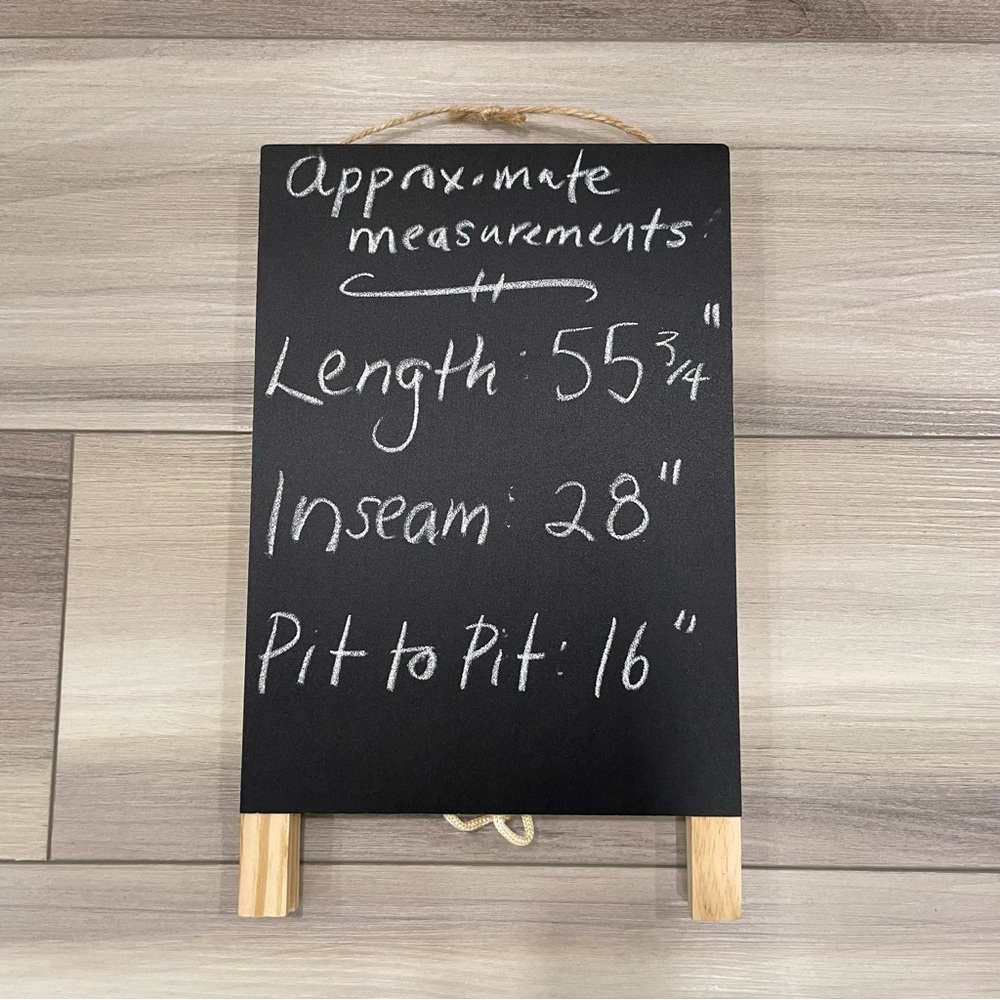 Approximate
measurements:
Length: 55 3/4"
Inseam: 28"
Pit to Pit: 16"